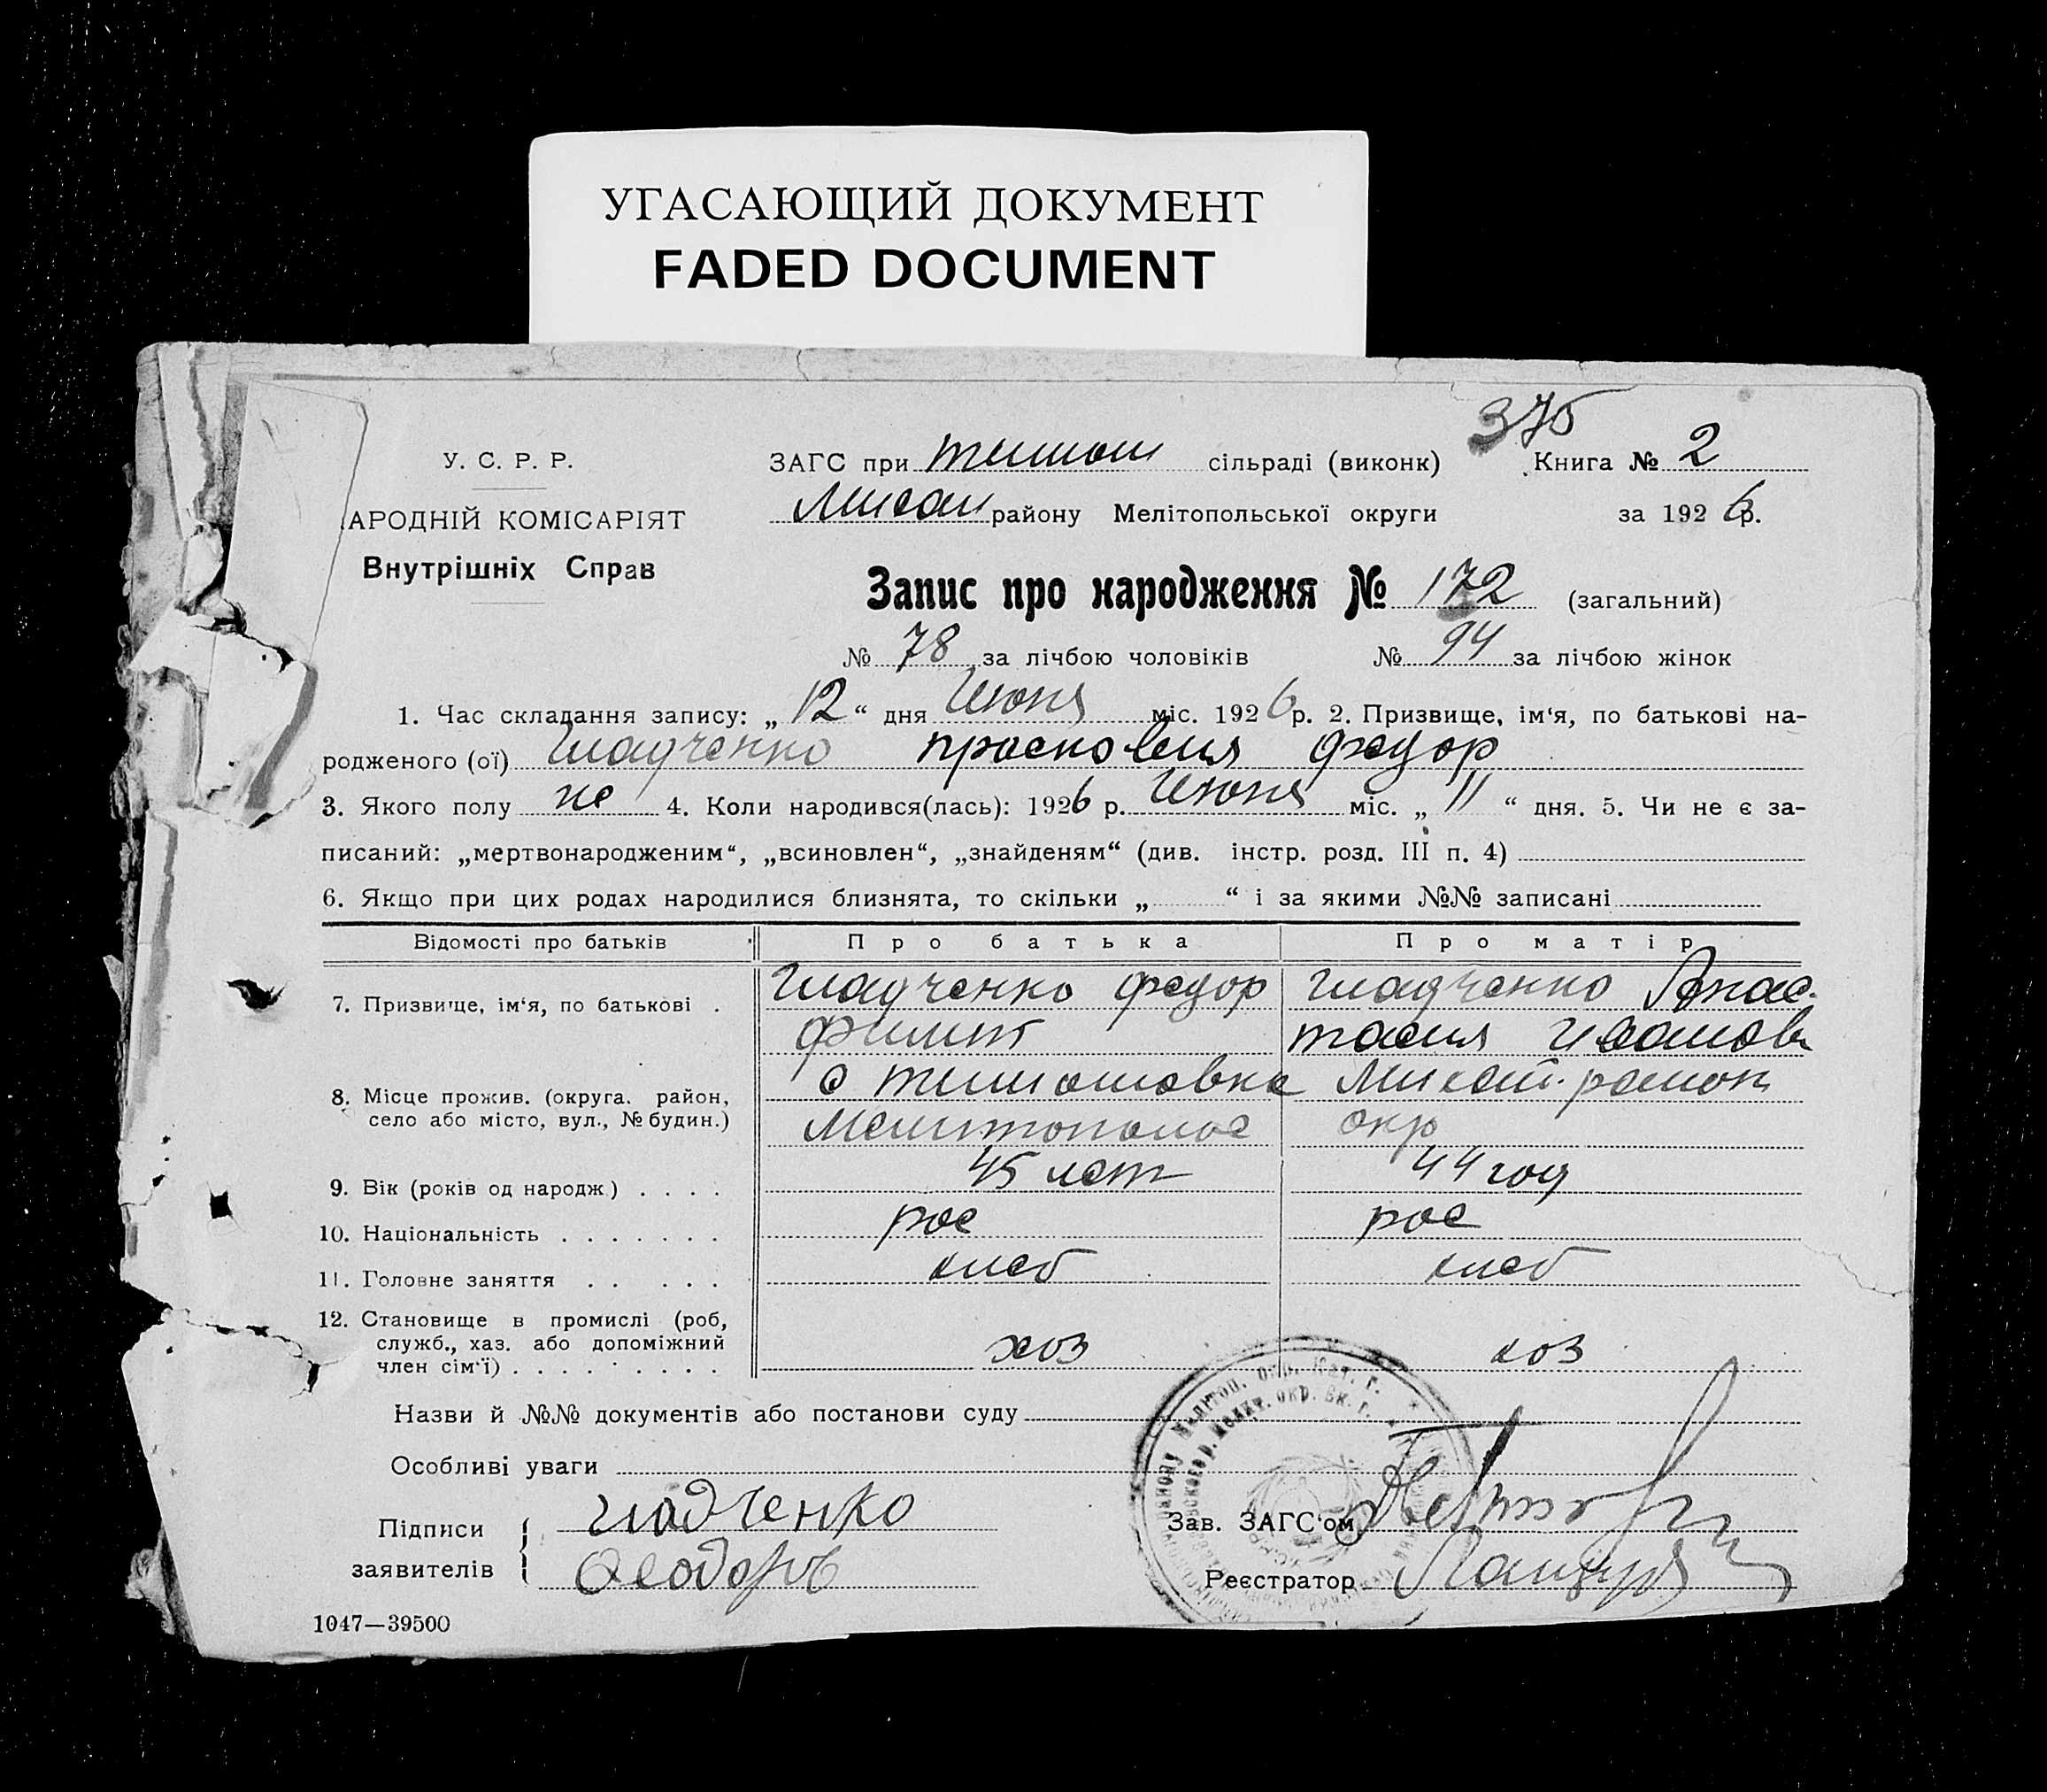 УГАСАЮЩИЙ ДОКУМЕНТ
FADED DOCUMENT
375
У. С. Р. Р.
АРОДНІЙ КОМІСАРІЯТ
Внутрішніх Справ
ЗАГС при тимош сільраді (виконк) Книга № 2
Михай району Мелітопольської округи за 1926 р.
Запис про народження № 172 (загальний)
№ 78 за лічбою чоловіків № 94 за лічбою жінок
1. Час складання запису: „12“ дня Июня міс. 1926 р. 2. Призвище, ім‘я, по батькові на-
родженого (ої) Гладченко прасковия федор
3. Якого полу же 4. Коли народився(лась): 1926 р. Июня міс. „11“ дня. 5. Чи не є за-
писаний: „мертвонародженим“, „всиновлен“, „знайденям“ (див. інстр. розд. III п. 4)
6. Якщо при цих родах народилися близнята, то скільки „ “ і за якими №№ записані
Відомості про батьків Про батька Про матір
7. Призвище, ім‘я, по батькові . Гладченко федор Гладченко Анас-
филип тасия Иванов
8. Місце прожив. (округа. район, с тимошовка Михай. район
село або місто, вул., № будин.) Мелитополь окр
9. Вік (років од народж.) . . . . 45 лет 44 год
10. Національність . . . . . . . рос рос
11. Головне заняття . . . . . хлеб хлеб
12. Становище в промислі (роб,
служб., хаз. або допоміжний
член сім‘ї) . . . . . . . . . хоз хоз
Назви й №№ документів або постанови суду
Особливі уваги
Підписи гладченко
заявителів Феодоръ
Зав. ЗАГС‘ом
Реєстратор
1047—39500